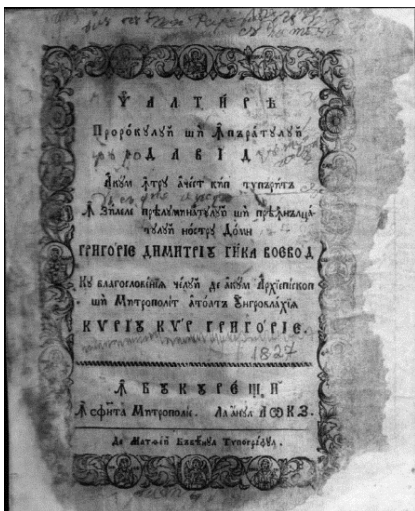 ѰАЛТИ́РѢ
Проро́кулуй шѝ Ꙟпъра́тулуй
ДАВІ́Д
Акꙋм ꙟтрꙋ аче́ст кип тѵпъри́тъ
Ꙟ Зи́леле прѣлꙋмина́тꙋлꙋй шѝ прѣꙟнълца́
тꙋлꙋй но́стрꙋ До́мн
ГРИГО́РІЕ ДИМИТРІꙊ ГИ́КА ВОЕВО́Д
Кꙋ благослове́нїѧ че́лꙋй де акꙋм Архїепі́скоп
шѝ Митрополи́т ато́атъ Ꙋнгровла́хїѧ
КѴ́РІꙊ КѴ́Р ГРИГО́РІЕ.
1827
Ꙟ БꙊКꙊРЕ́ЩЙ
Ꙟ сфи́нта Митрополи́е. Ла а́нꙋл АѾКЗ.
Де Матѳе́й Бабѣ́нꙋл Тѵпогра́фꙋл.